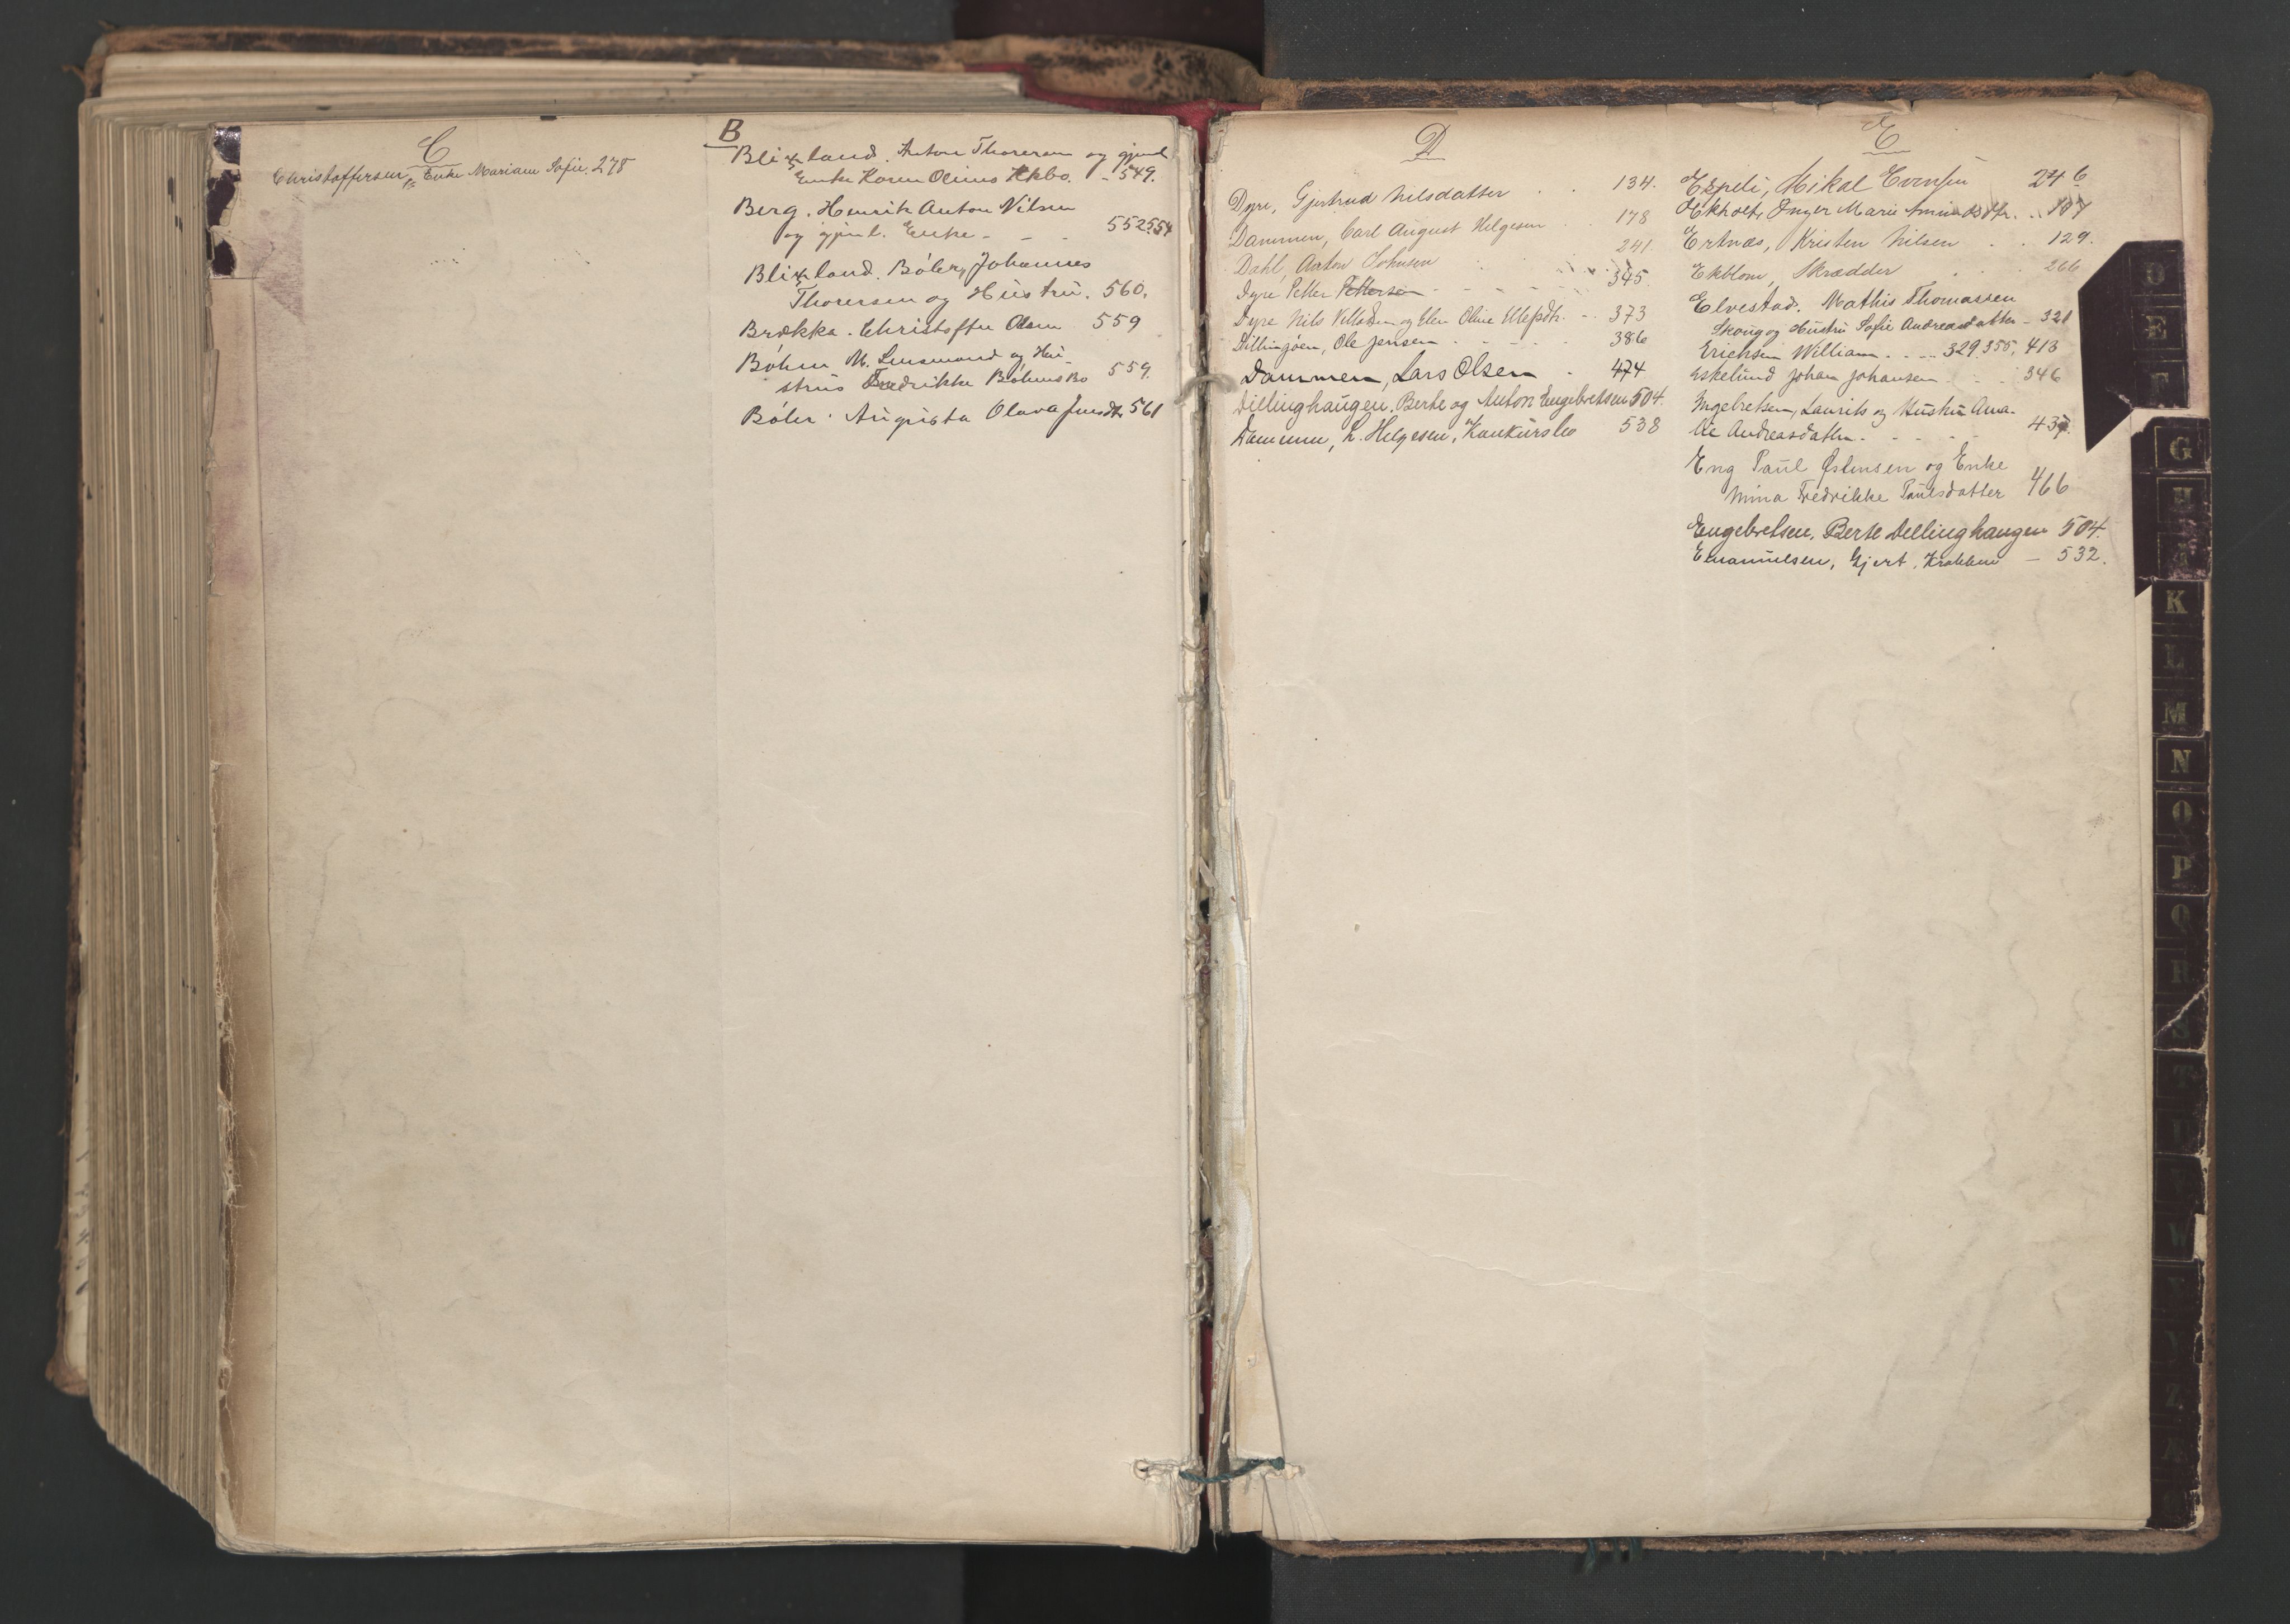 C
Christoffersen, Enke Mariam Sofie. 278
B
Blixland. Anton Thoresen og gjenl.
Enke Karen Olines Fællesbo. - 549.
Berg. Henrik Anton Nilsen
og gjenl. Enke - - - 552 554
Blixland. Böler, Johannes
Thoresen og Hustru. 560.
Brække. Christoffer Olsen 559
Böhm M. Lensmand og Hu-
strus Fredrikke Böhms Bo 559.
Böler. Augusta Olava Jensdtr 561
D
Dyre, Gjertrud Nilsdatter . . 134.
Dammen, Carl August Helgesen . . 178
Dahl, Anton Johnsen 241
Dyre Petter Pettersen - - - - 345.
Dyre Nils Nilsen og Elen Oline - 373
Dillingöen, Ole Jensen - - - - 386
Dammen, Lars Olsen - 474
Dillinghaugen. Berte og Anton Engebretsen 504.
Dammen, L. Helgesen, Konkursbo 538
E
Espeli, Mikal Evensen 246
Ekholt, Inger Marie Amundsdtr. . 107
Ertnæs, Kristen Nilsen . . 129.
Ekblom, Skrædder . . . 266
Elvestad. Mathis Thomassen
Skoug og Hustru Sofie Andreasdatter - 321
Erichsen William . . - - 329. 355, 413
Eskelund Johan Johansen - . . 346
Engebretsen, Laurits og Hustru Ama-
lie Andreasdatter - - - - 437.
Eng Paul Østensen og Enke
Mina Fredrikke Paulsdatter 466
Engebretsen, Berte Dillinghaugen 504.
Emanuelsen, Gjert, Krabben — 532.
D
E
F
G
H
K
L
M
N
O
P
Q
R
S
T
U
W
Y
Z
Æ